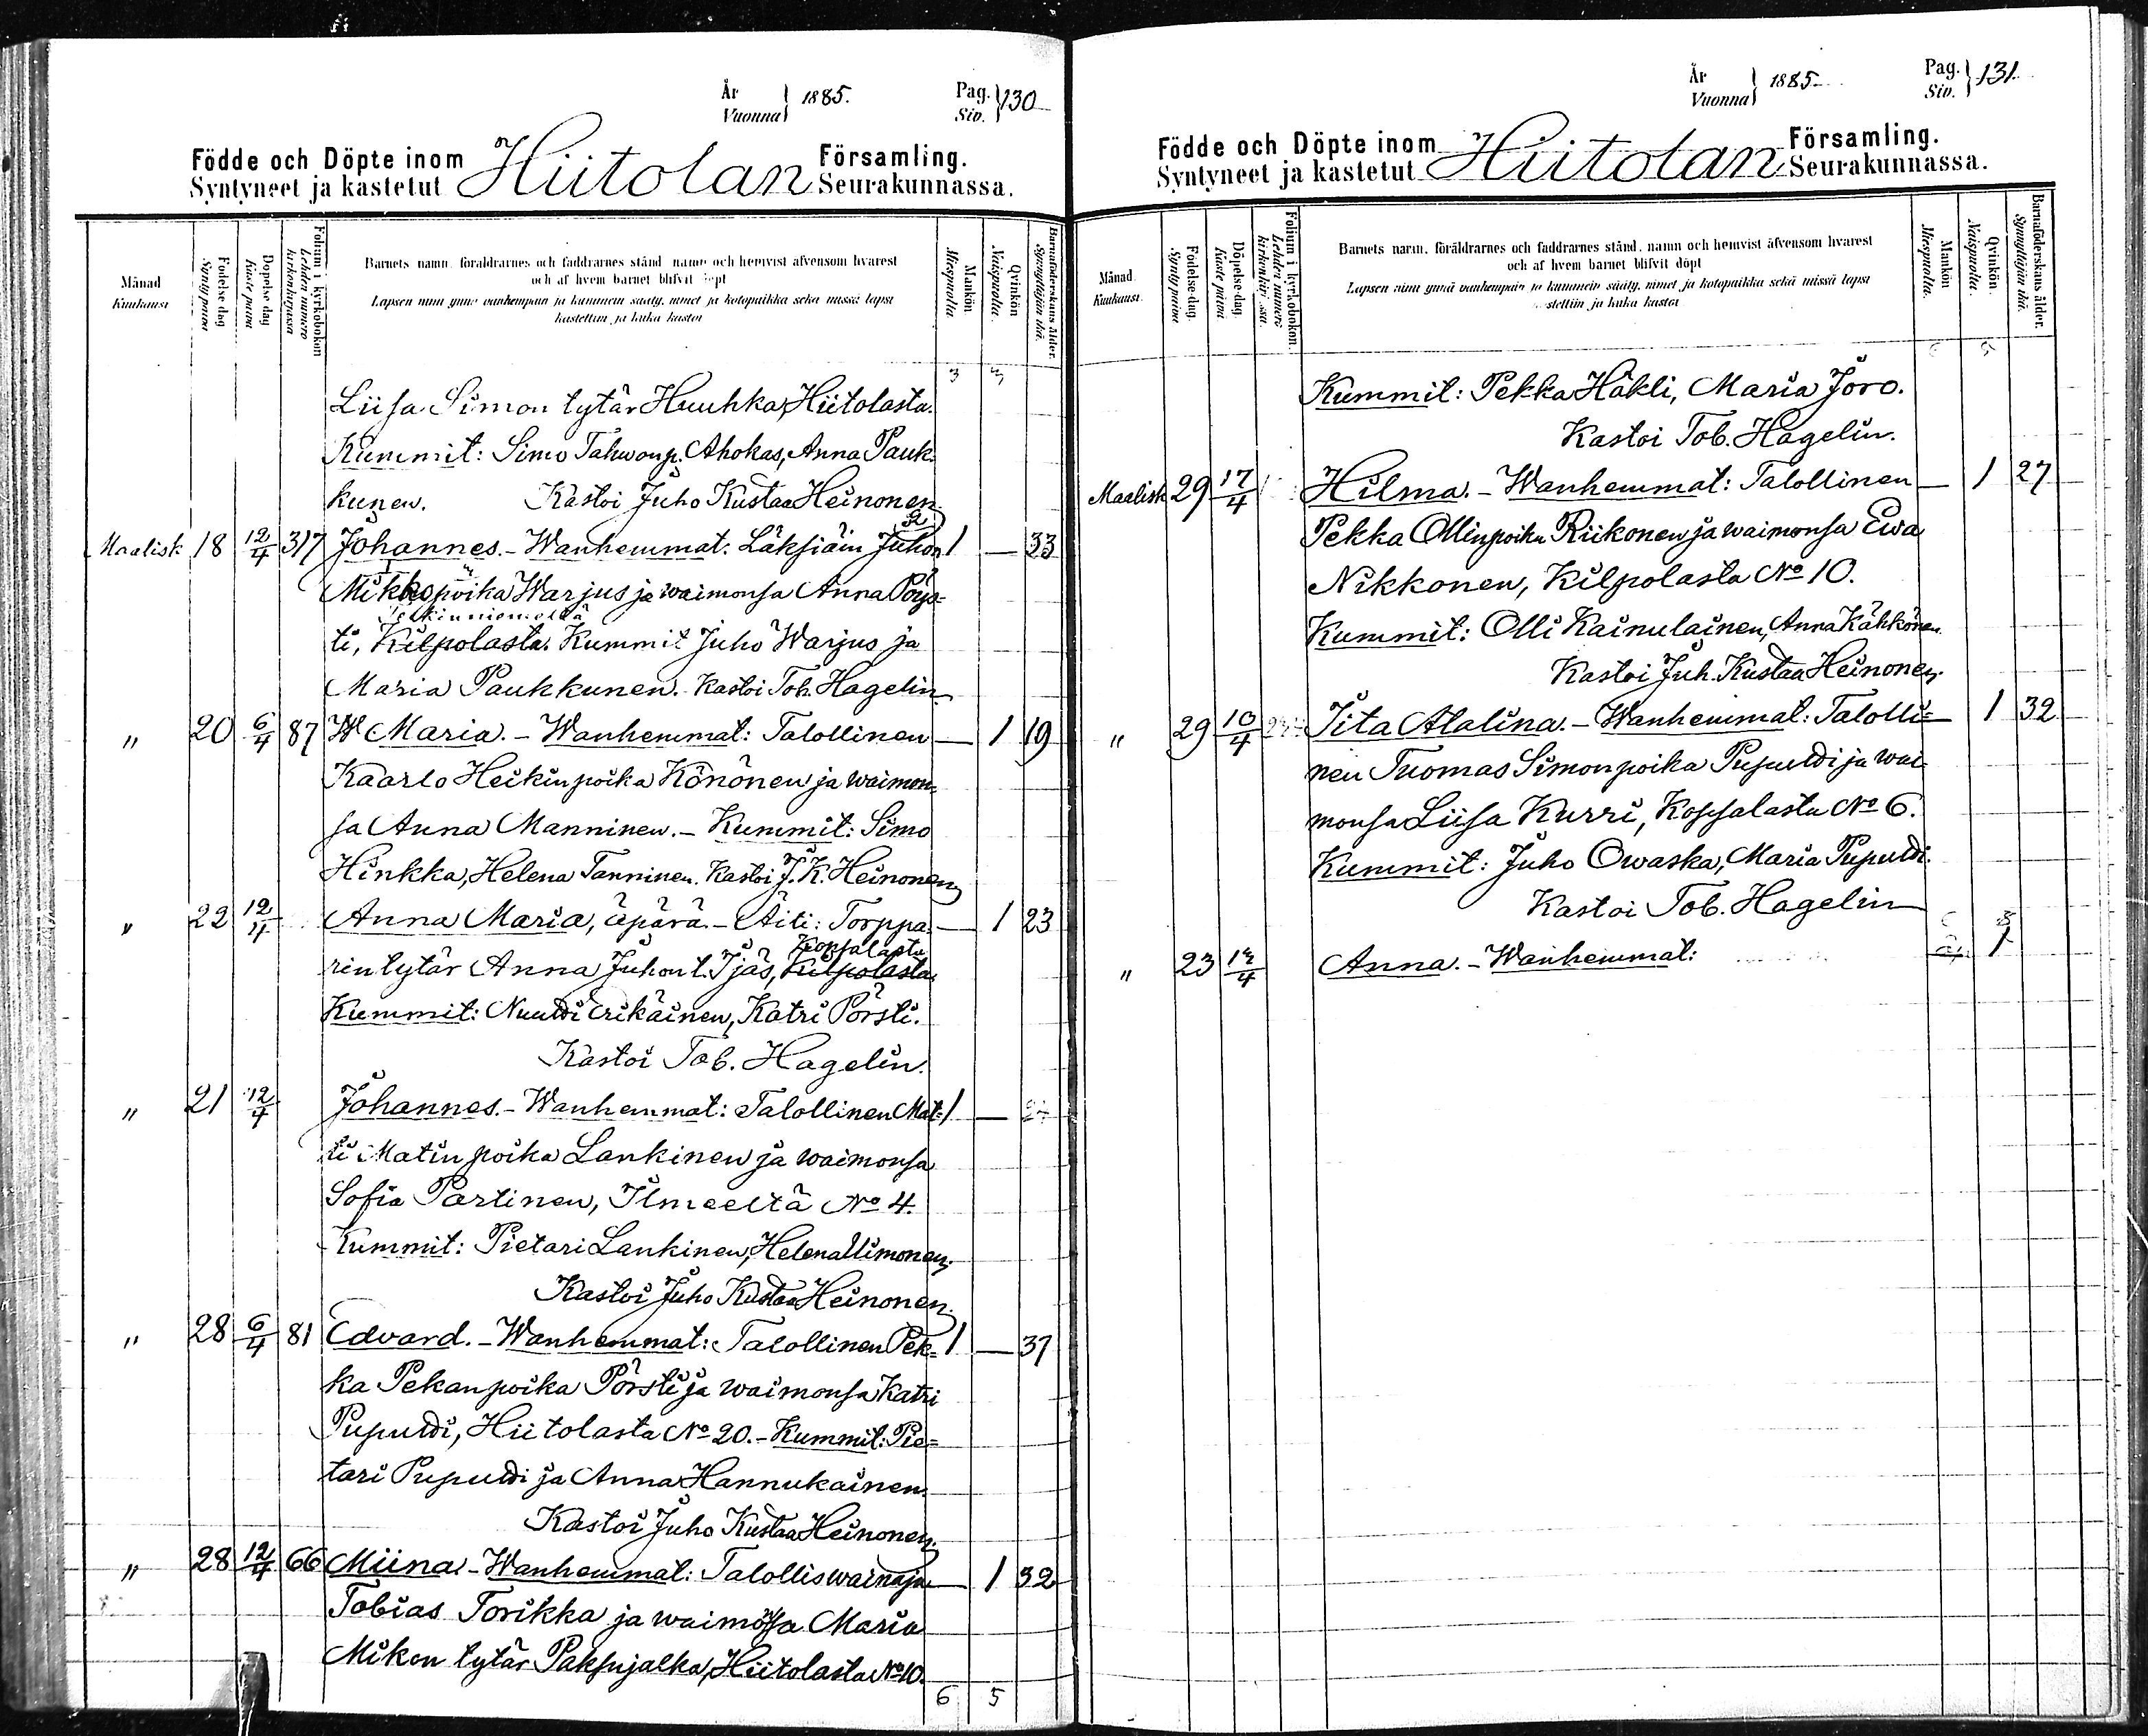 År Vuonna 1885. Pag. Siv. 130
Födde och Döpte inom Hiitolan Församling.
Syntyneet ja kastetut Seurakunnassa.
Månad Kuukausi
Födelse dag Synty päivä
Döpelse dag Kaste päivä
Folium i kyrkoboken Lehden numero kirkonkirjassa
Barnets namn, föräldrarnes och faddrarnes stånd, namn och hemvist äfvensom hvarest
och af hvem barnet blifvit döpt
Lapsen nimi ynnä vanhempain ja kummein sääty, nimet ja kotopaikka sekä missä lapsi
kastettiin ja kuka kastoi
Mankön Miespuolia.
Qvinkön Naispuolia.
Barnaföderskans ålder. Synnyttäjän ikä.
3 3
Liisa Simon tytär Huuhka, Hiitolasta.
Kummit: Simo Tahwonp. Ahokas, Anna Pauk-
kunen. Kastoi Juho Kustaa Heinonen.
Maalisk 18 12/4 317 Johannes. - Wanhemmat: Läksiäin Juhon 1 — 33
Mikkopoika Warjus ja waimonsa Anna Pöys-
ti, Kilpolasta. Kummit Juho Warjus ja
Maria Paukkunen. Kastoi Tob. Hagelin
" 20 6/4 87 W Maria. - Wanhemmat: Talollinen — 1 19
Kaarlo Heikinpoika Könönen ja waimon-
sa Anna Manninen. - Kummit: Simo
Hinkka, Helena Tanninen. Kastoi J. K. Heinonen
" 22 12/4 Anna Maria, äpärä. - Äiti: Torppa- — 1 23
Kopsalasta
rintytär Anna Juhont. Ijäs, Kilpolasta.
Kummit: Nuutti Erikäinen, Katri Pörsti.
Kastoi Tob. Hagelin.
" 21 12/4 Johannes. - Wanhemmat: Talollinen Mat- 1 —
ti Matinpoika Lankinen ja waimonsa
Sofia Partinen, Ilmeeltä No 4.
Kummit: Pietari Lankinen, Helena Uimonen.
Kastoi Juho Kustaa Heinonen.
" 28 6/4 81 Edvard. - Wanhemmat: Talollinen Pek- 1 — 37
ka Pekanpoika Pörsti ja waimonsa Katri
Puputti, Hiitolasta No 20. - Kummit: Pie-
tari Puputti ja Anna Hannukainen.
Kastoi Juho Kustaa Heinonen.
" 28 12/4 66 Miina - Wanhemmat: Talolliswainaja — 1 32
Tobias Torikka ja waimosa Maria
Mikon tytär Paksujalka, Hiitolasta No 10.
6 5
År Vuonna 1885. Pag. Siv. 131.
Födde och Döpte inom Hiitolan Församling.
Syntyneet ja kastetut Seurakunnassa.
Månad Kuukausi
Födelse-dag Synty päivä
Döpelse-dag Kaste päivä
Folium i kyrkoboken. Lehden numero
Barnets namn, föräldrarnes och faddrarnes stånd, namn och hemvist äfvensom hvarest
och af hvem barnet blifvit döpt
Lapsen nimi ynnä vanhempain ja kummein sääty, nimet ja kotopaikka sekä missä lapsi
kastettiin ja kuka kastoi
Mankön Miespuolia.
Qvinkön Naispuolia.
Barnaföderskans ålder. Synnyttäjän ikä.
Kummit: Pekka Häkli, Maria Joro.
Kastoi Tob. Hagelin.
Maalisk 29 17/4 Hilma. - Wanhemmat: Talollinen — 1 27
Pekka Ollinpoika Riikonen ja waimonsa Ewa
Nikkonen, Kilpolasta No 10.
Kummit: Olli Kainulainen, Anna Kähkönen.
Kastoi Juh. Kustaa Heinonen.
" 29 10/4 Iita Alalina. - Wanhemmat: Talolli- — 1 32
nen Tuomas Simonpoika Puputti ja wai-
monsa Liisa Kurri, Kopsalasta No 6.
Kummit: Juho Owaska, Maria Puputti.
Kastoi Tob. Hagelin
" 23 Anna. - Wanhemmat: 1